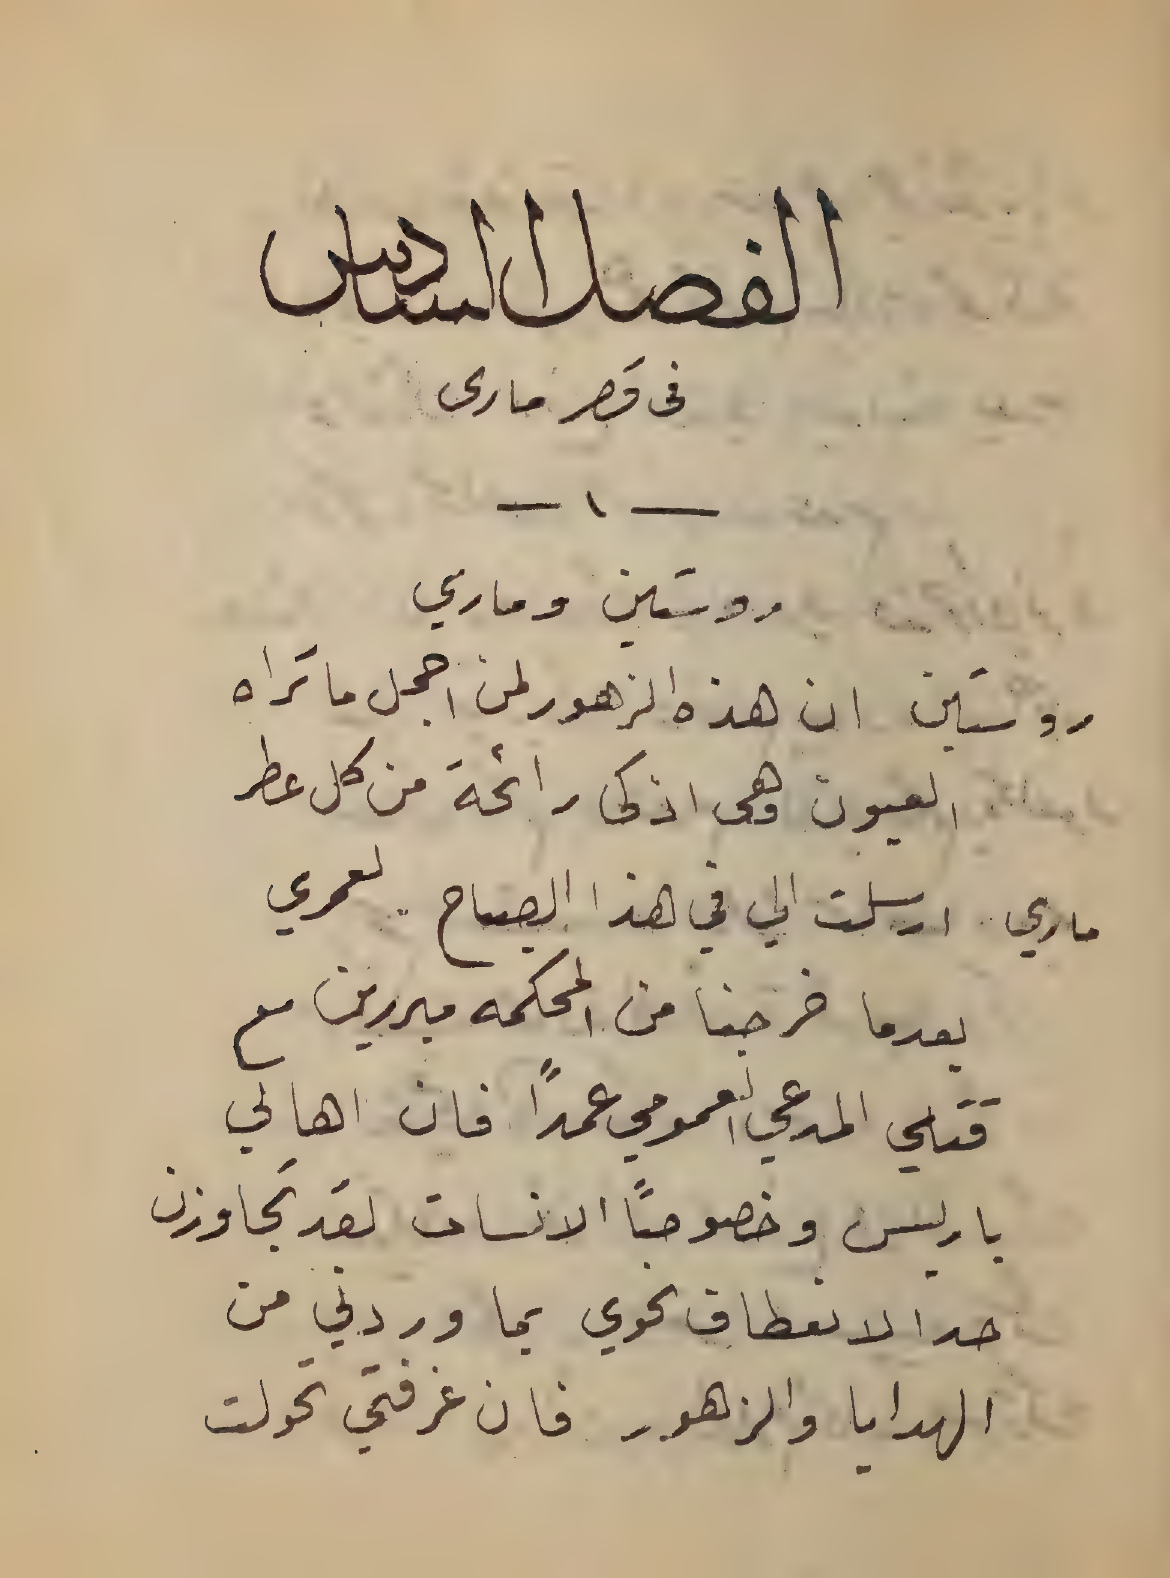 الفصل السادس
فى قصر مارى
— ١ —
روستين وماري
روستين ان هذه الزهور لمن اجمل ما تراه
العيون وهى اذكى رائحة من كل عطر
ماري ارسلت الي في هذا الصباح . لعمري
بعدما خرجنا من المحكمه مبررين مع
قتلي المدعي العمومي عمدًا فان اهالي
باريس وخصوصًا الانسات لقد تجاوزن
حد الانعطاف نحوي بما وردني من
الهدايا والزهور فان غرفتي تحولت